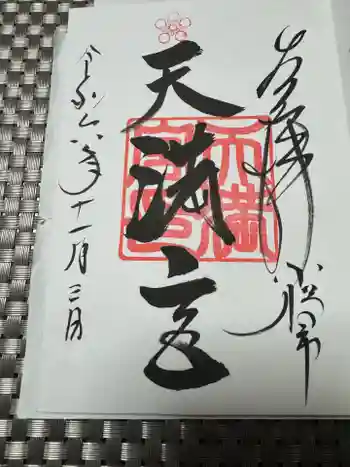 奉拝
小松市
天満宮
令和六年十一月三日